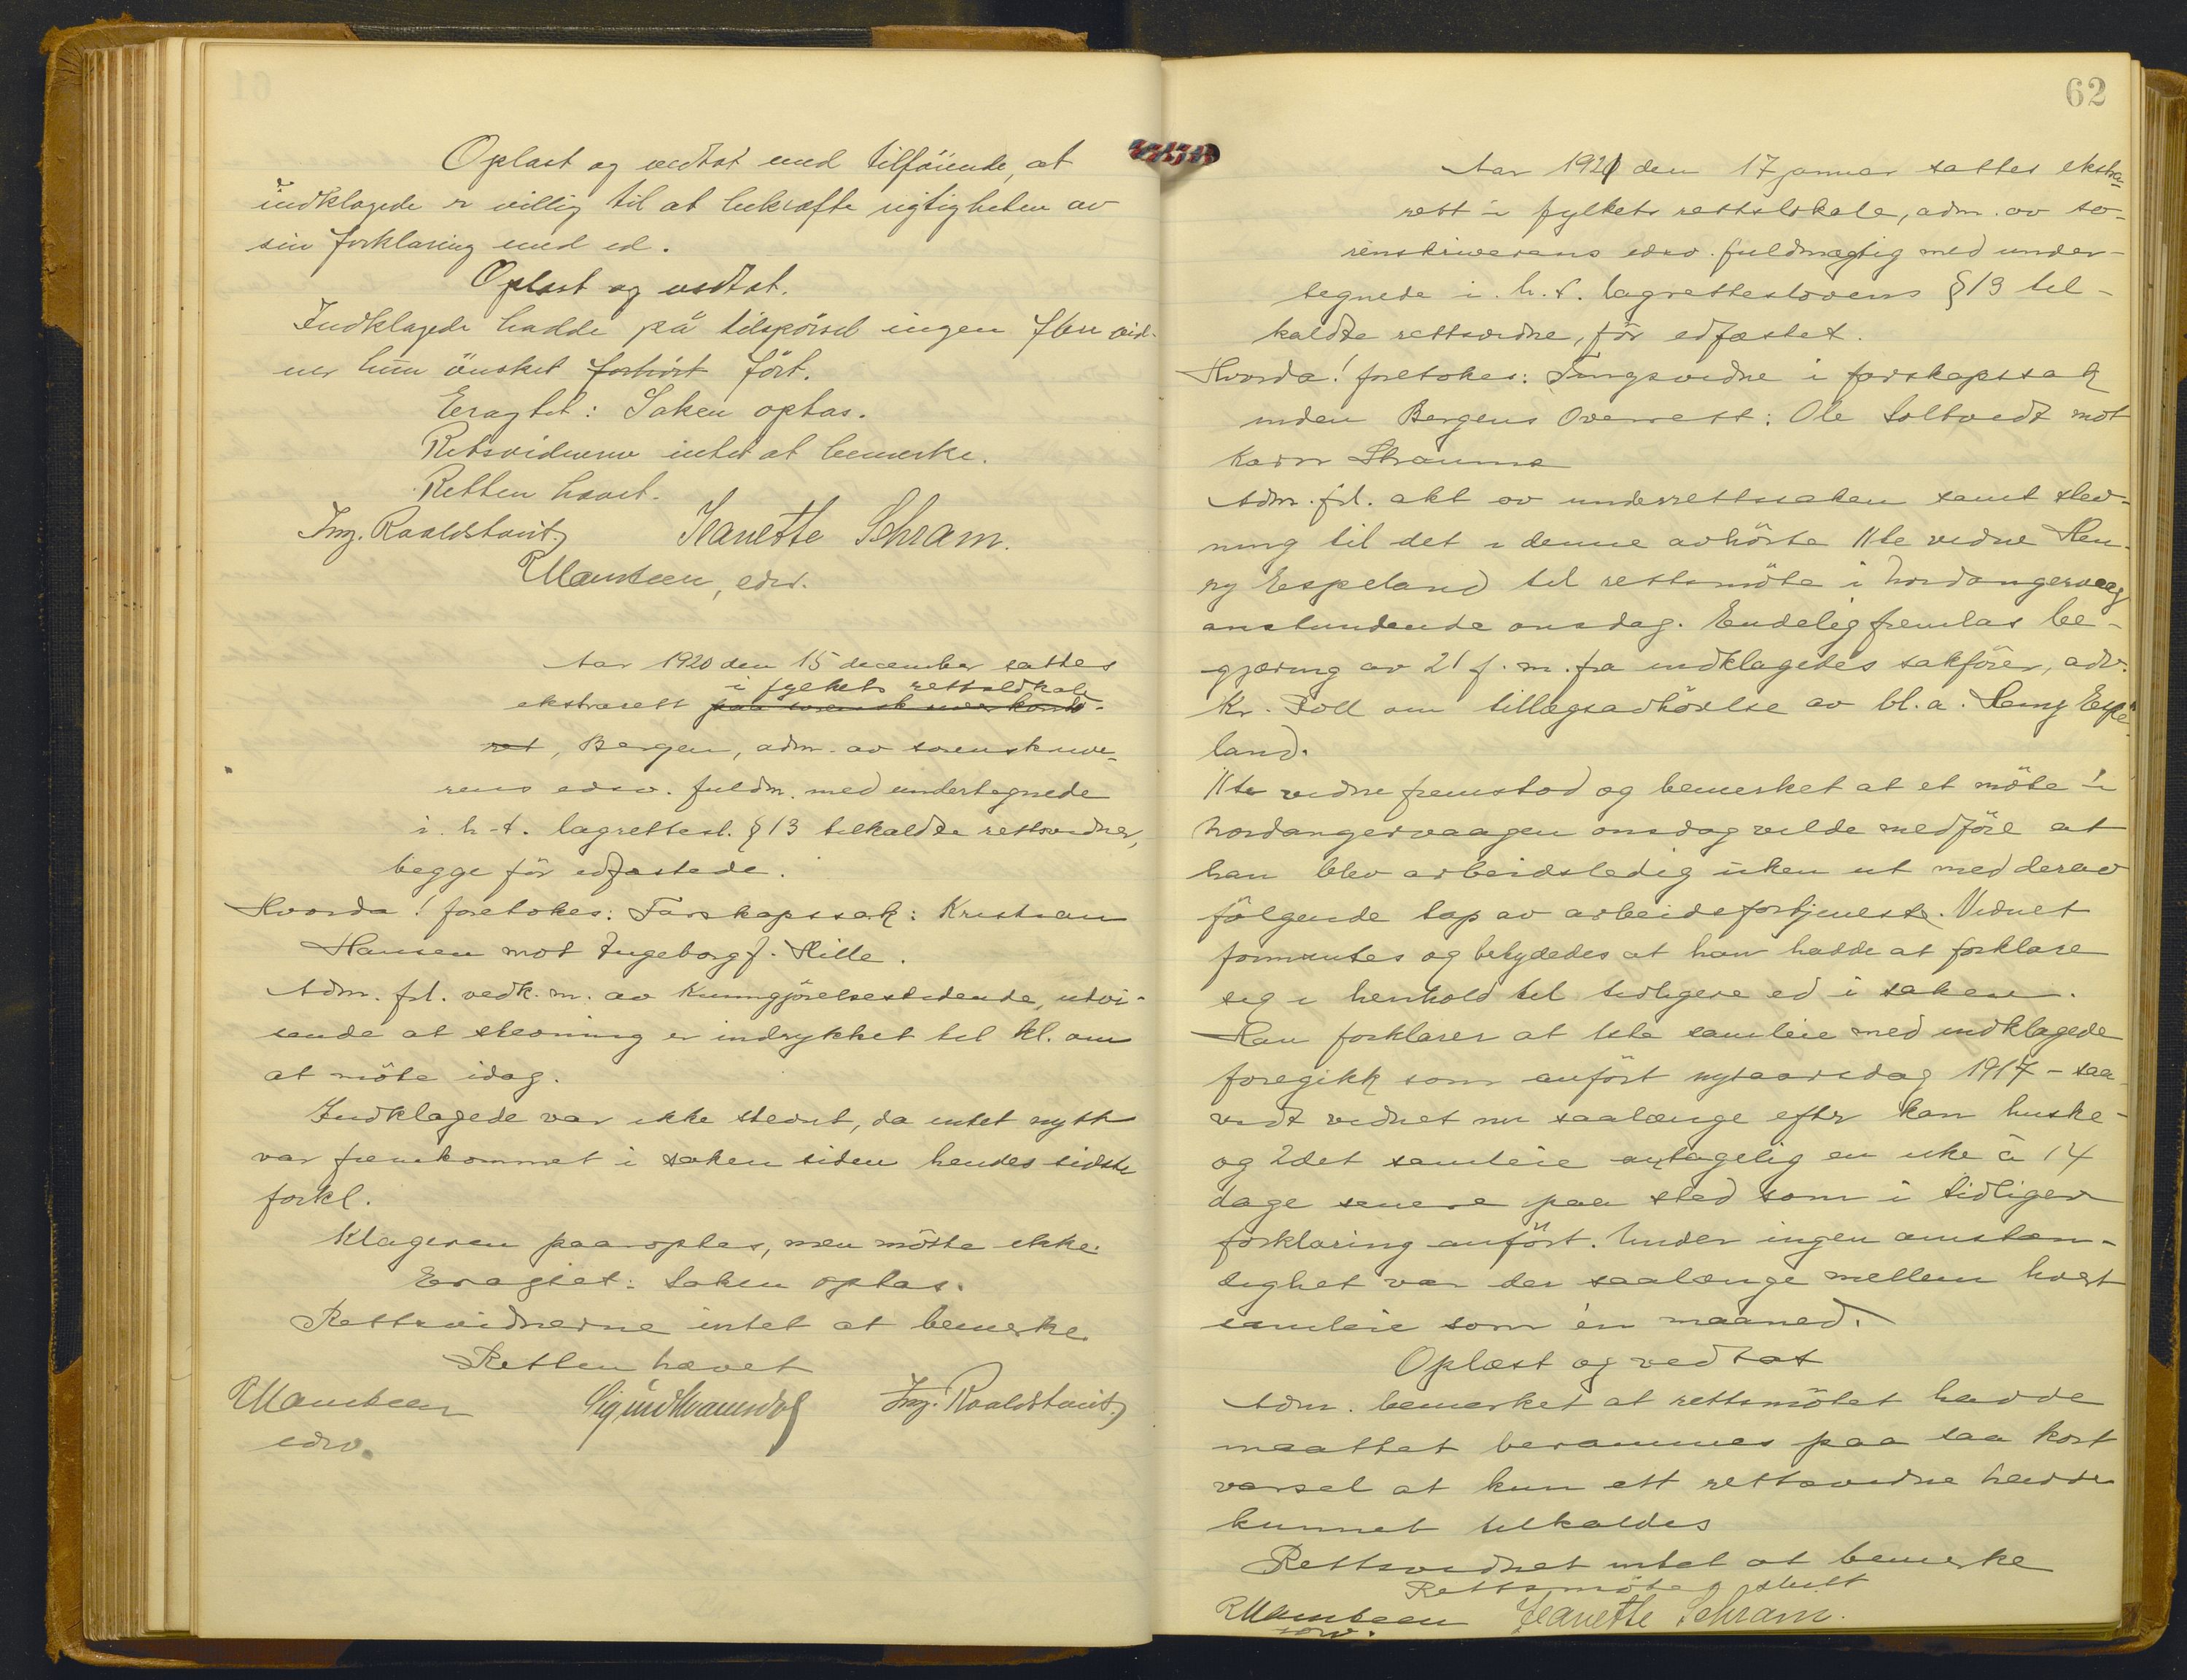 Oplæst og vedtat med tilföiende, at
indklagede er villig til at bekræfte rigtigheten av
sin forklaring med ed.
Oplæst og vedtat.
Indklagede hadde på tilspörsel ingen flere vid-
ner hun önsket forhört fört.
Eragtet: Saken optas.
Retsvidnerne intet at bemerke.
Retten hævet.
Ing. Raaldstveit. Jeanette Schram.
edsv.
Aar 1920 den 15 december sattes
i fylkets rettslokale
ekstrarett paa sorenskriverkonto-
ret, Bergen, adm. av sorenskrive-
rens edsv. fuldm. med undertegnede
i. h. t. lagrettesl. §13 tilkaldte rettsvidner,
begge för edfæstede.
Hvorda! foretokes: Farskapssak: Kristian
Hansen mot Ingeborg J. Hille.
Adm. frl. vedk. nr. av Kunngjörelsestidende, utvi-
sende at stevning er indrykket til kl. om
at möte idag.
Indklagede var ikke stevnt, da intet nytt
var fremkommet i saken siden hendes sidste
forkl.
Klageren paaroptes, men mötte ikke.
Eragtet: Saken optas.
Rettsvidnerne intet at bemerke.
Retten hævet
Ing. Raaldstveit.
edsv.
62
Aar 1921 den 17 januar sattes ekstra-
rett i fylkets rettslokale, adm. av so-
renskriverens edsv. fuldmægtig med under-
tegnede i. h. t. lagretteslovens §13 til-
kaldte rettsvidne, för edfæstet.
Hvorda! foretokes: Tingsvidne i farskapssak
inden Bergens Overrett: Ole Soltvedt mot
Karen Straume
Adm. frl. akt av underrettssaken samt stev-
ning til det i denne avhörte 11te vidne Hen-
ry Espeland til rettsmöte i Nordangervaag
anstundende onsdag. Endelig fremlas be-
gjæring av 21 f. m. fra indklagedes sakförer, adv.
Kr. Toll om tillægsavhörelse av bl. a. Henry Espe-
land.
11te vidne fremstod og bemerket at et möte i
Nordangervaagen onsdag vilde medföre at
han blev arbeidsledig uken ut med derav
fölgende tap av arbeidsfortjeneste. Vidnet
formantes og betydedes at han hadde at forklare
seg i henhold til tidligere ed i saken.
Han forklarer at 1ste samleie med indklagede
foregikk som anfört nytaarsdag 1917 - saa
vidt vidnet nu saalænge efter kan huske -
og 2det samleie antagelig en uke à 14
dage senere paa sted som i tidligere
forklaring anfört. Under ingen omsten-
dighet var der saalænge mellem hvert
samleie som én maaned.
Oplæst og vedtat
Adm. bemerket at rettsmötet hadde
maattet berammes paa saa kort
varsel at kun ett rettsvidne hadde
kunnet tilkaldes
Rettsvidnet intet at bemerke
Rettsmötet slutt
Jeanette Schram.
edsv.